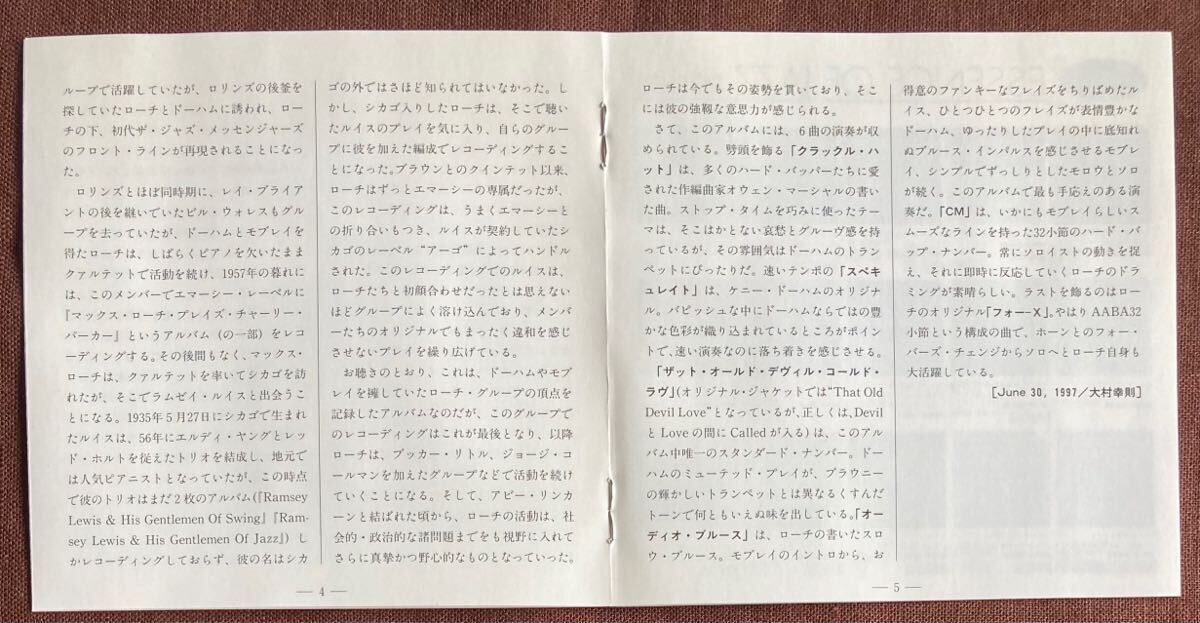 ループで活躍していたが、ロリンズの後釜を
探していたローチとドーハムに誘われ、ロー
チの下、初代ザ・ジャズ・メッセンジャーズ
のフロント・ラインが再現されることになっ
た。
ロリンズとほぼ同時期に、レイ・ブライア
ントの後を継いでいたビル・ウォレスもグル
ープを去っていたが、ドーハムとモブレイを
得たローチは、しばらくピアノを欠いたまま
クァルテットで活動を続け、1957年の暮れに
は、このメンバーでエマーシー・レーベルに
『マックス・ローチ・プレイズ・チャーリー・
パーカー』というアルバム（の一部）をレコ
ーディングする。その後間もなく、マックス・
ローチは、クァルテットを率いてシカゴを訪
れたが、そこでラムゼイ・ルイスと出会うこ
とになる。1935年5月27日にシカゴで生まれ
たルイスは、56年にエルディ・ヤングとレッ
ド・ホルトを従えたトリオを結成し、地元で
は人気ピアニストとなっていたが、この時点
で彼のトリオはまだ2枚のアルバム(『Ramsey
Lewis & His Gentlemen Of Swing』『Ram-
sey Lewis & His Gentlemen Of Jazz』）し
かレコーディングしておらず、彼の名はシカ
ゴの外ではさほど知られてはいなかった。し
かし、シカゴ入りしたローチは、そこで聴い
たルイスのプレイを気に入り、自らのグルー
プに彼を加えた編成でレコーディングするこ
とになった。ブラウンとのクインテット以来、
ローチはずっとエマーシーの専属だったが、
このレコーディングは、うまくエマーシーと
の折り合いもつき、ルイスが契約していたシ
カゴのレーベル“アーゴ”によってハンドル
された。このレコーディングでのルイスは、
ローチたちと初顔合わせだったとは思えない
ほどグループによく溶け込んでおり、メンバ
ーたちのオリジナルでもまったく違和を感じ
させないプレイを繰り広げている。
お聴きのとおり、これは、ドーハムやモブ
レイを擁していたローチ・グループの頂点を
記録したアルバムなのだが、このグループで
のレコーディングはこれが最後となり、以降
ローチは、ブッカー・リトル、ジョージ・コ
ールマンを加えたグループなどで活動を続け
ていくことになる。そして、アビー・リンカ
ーンと結ばれた頃から、ローチの活動は、社
会的・政治的な諸問題までをも視野に入れて
さらに真摯かつ野心的なものとなっていった。
— 4 —
ローチは今でもその姿勢を貫いており、そこ
には彼の強靱な意思力が感じられる。
さて、このアルバムには、6曲の演奏が収
められている。劈頭を飾る「クラックル・ハ
ット」は、多くのハード・バッパーたちに愛
された作編曲家オウェン・マーシャルの書い
た曲。ストップ・タイムを巧みに使ったテー
マは、そこはかとない哀愁とグルーヴ感を持
っているが、その雰囲気はドーハムのトラン
ペットにぴったりだ。速いテンポの「スペキ
ュレイト」は、ケニー・ドーハムのオリジナ
ル。バピッシュな中にドーハムならではの豊
かな色彩が織り込まれているところがポイン
トで、速い演奏なのに落ち着きを感じさせる。
「ザット・オールド・デヴィル・コールド・
ラヴ」(オリジナル・ジャケットでは“That Old
Devil Love”となっているが、正しくは、Devil
とLoveの間にCalledが入る）は、このアル
バム中唯一のスタンダード・ナンバー。ドー
ハムのミューテッド・プレイが、ブラウニー
の輝かしいトランペットとは異なるくすんだ
トーンで何ともいえぬ味を出している。「オー
ディオ・ブルース」は、ローチの書いたスロ
ウ・ブルース。モブレイのイントロから、お
得意のファンキーなフレイズをちりばめたル
イス、ひとつひとつのフレイズが表情豊かな
ドーハム、ゆったりしたプレイの中に底知れ
ぬブルース・インパルスを感じさせるモブレ
イ、シンプルでずっしりとしたモロウとソロ
が続く。このアルバムで最も手応えのある演
奏だ。「CM」は、いかにもモブレイらしいス
ムーズなラインを持った32小節のハード・バ
ップ・ナンバー。常にソロイストの動きを捉
え、それに即時に反応していくローチのドラ
ミングが素晴らしい。ラストを飾るのはロー
チのオリジナル「フォー－X」。やはりAABA32
小節という構成の曲で、ホーンとのフォー・
バーズ・チェンジからソロへとローチ自身も
大活躍している。
[June 30, 1997／大村幸則]
— 5 —